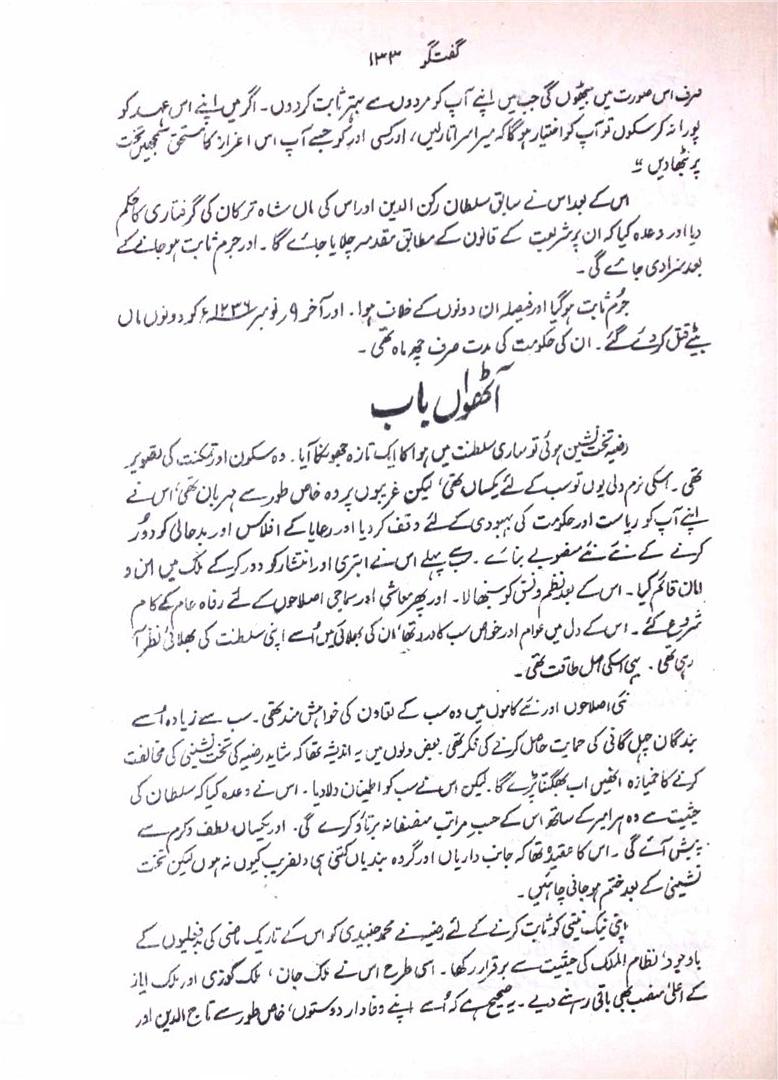 گفتگو ۱۳۳
صرف اس صورت میں بیٹھوں گی جب میں اپنے آپ کو مردوں سے بہتر ثابت کردوں۔ اگر میں اپنے اس عہد کو
پورا نہ کرسکوں تو آپ کو اختیار ہوگا کہ میرا سر اتار لیں، اور کسی اور کو جسے آپ اس اعزاز کا مستحق سمجھیں تخت
پر بٹھا دیں"۔
اس کے بعد اس نے سابق سلطان رکن الدین اور اس کی ماں شاہ ترکان کی گرفتاری کا حکم
دیا اور وعدہ کیا کہ ان پر شریعت کے قانون کے مطابق مقدمہ چلایا جائے گا۔ اور جرم ثابت ہوجانے کے
بعد سزا دی جائے گی۔
جُرم ثابت ہوگیا اور فیصلہ ان دونوں کے خلاف ہوا۔ اور آخر ۹ر نومبر ۱۲۳۶ء کو دونوں ماں
بیٹے قتل کردئے گئے۔ ان کی حکومت کی مدت صرف چھ ماہ تھی۔
آٹھواں باب
رضیہ تخت نشین ہوئی تو ساری سلطنت میں ہوا کا ایک تازہ جھونکا آیا۔ وہ سکون اور تمکنت کی تصویر
تھی۔ اسکی نرم دلی یوں تو سب کے لئے یکساں تھی، لیکن غریبوں پر وہ خاص طور سے مہربان تھی، اس نے
اپنے آپ کو ریاست اور حکومت کی بہبودی کے لئے وقف کردیا اور رعایا کے افلاس اور بدحالی کو دُور
کرنے کے نئے نئے منصوبے بنائے۔ سب پہلے اس نے ابتری اور انتشار کو دور کرکے ملک میں امن و
امان قائم کیا۔ اس کے بعد نظم و نسق کو سنبھالا۔ اور پھر معاشی اور سماجی اصلاحوں کے لئے رفاہ عام کے کام
شروع کئے۔ اس کے دل میں عوام اور خواص سب کا درد تھا، ان کی بھلائی میں اُسے اپنی سلطنت کی بھلائی نظر آ
رہی تھی۔ یہی اسکی اصل طاقت تھی۔
نئی اصلاحوں اور نئے کاموں میں وہ سب کے تعاون کی خواہش مند تھی۔ سب سے زیادہ اُسے
بندگان چہل گانی کی حمایت حاصل کرنے کی فکر تھی۔ بعض دلوں میں یہ اندیشہ تھا کہ شاید رضیہ کی تخت نشینی کی مخالفت
کرنے کا خمیازہ انھیں اب بھگتنا پڑے گا۔ لیکن اس نے سب کو اطمینان دلادیا۔ اس نے وعدہ کیا کہ سلطان کی
حیثیت سے وہ ہر امیر کے ساتھ اس کے حسبِ مراتب منصفانہ برتاؤ کرے گی۔ اور یکساں لطف و کرم سے
پیش آئے گی۔ اس کا عقیدہ تھا کہ جانب داریاں اور گروہ بندیاں کتنی ہی دلفریب کیوں نہ ہوں لیکن تخت
نشینی کے بعد ختم ہوجانی چاہئیں۔
اپنی نیک نیتی کو ثابت کرنے کے لئے رضیہ نے محمد جنیدی کو اس کے تاریک ماضی کی بدفعلیوں کے
باوجود، نظام الملک کی حیثیت سے برقرار رکھا۔ اسی طرح اس نے ملک جان، ملک گوزی اور ملک ایاز
کے اعلیٰ منصب بھی باقی رہنے دیے۔ یہ صحیح ہے کہ اُسے اپنے وفادار دوستوں، خاص طور سے تاج الدین اور